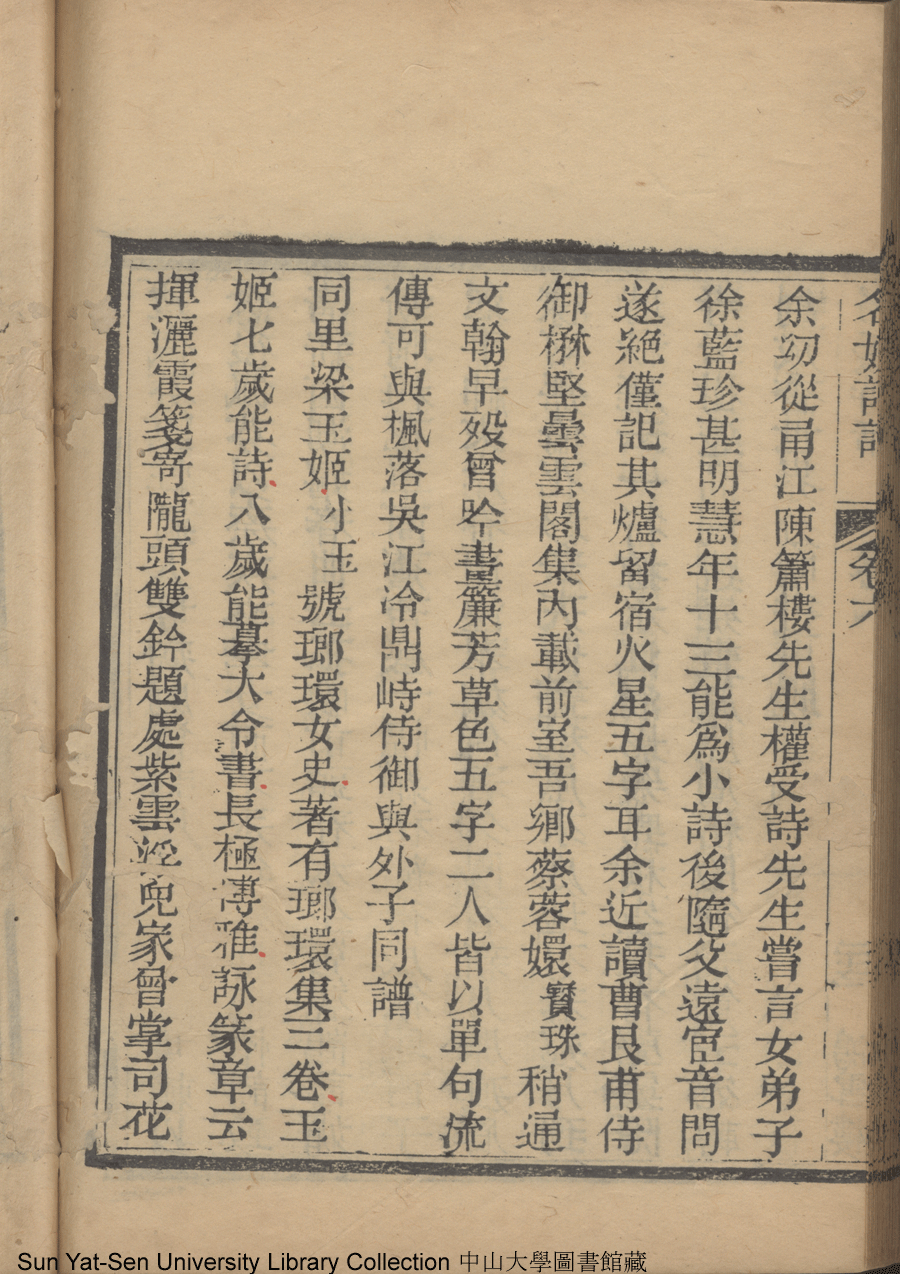 名媛詩話 卷六
余㓜從甬江陳簫樓先生權受詩先生嘗言女弟子
徐藍珍甚明慧年十三能爲小詩後隨父遠宦音問
遂絕僅記其爐留宿火星五字耳余近讀曹艮甫侍
御楙堅曇雲閣集內載前室吾鄉蔡蓉嬛寶珠稍通
文翰早歿曾吟畫簾芳草色五字二人皆以單句流
傳可與楓落吳江冷鼎峙侍御與外子同譜
同里梁玉姬小玉號瑯環女史著有瑯環集三卷玉
姬七歲能詩八歲能摹大令書長極博雅詠篆章云
揮灑霞箋寄隴頭雙鈐題處紫雲兜家曾掌司花
Sun Yat-Sen University Library Collection 中山大學圖書館藏